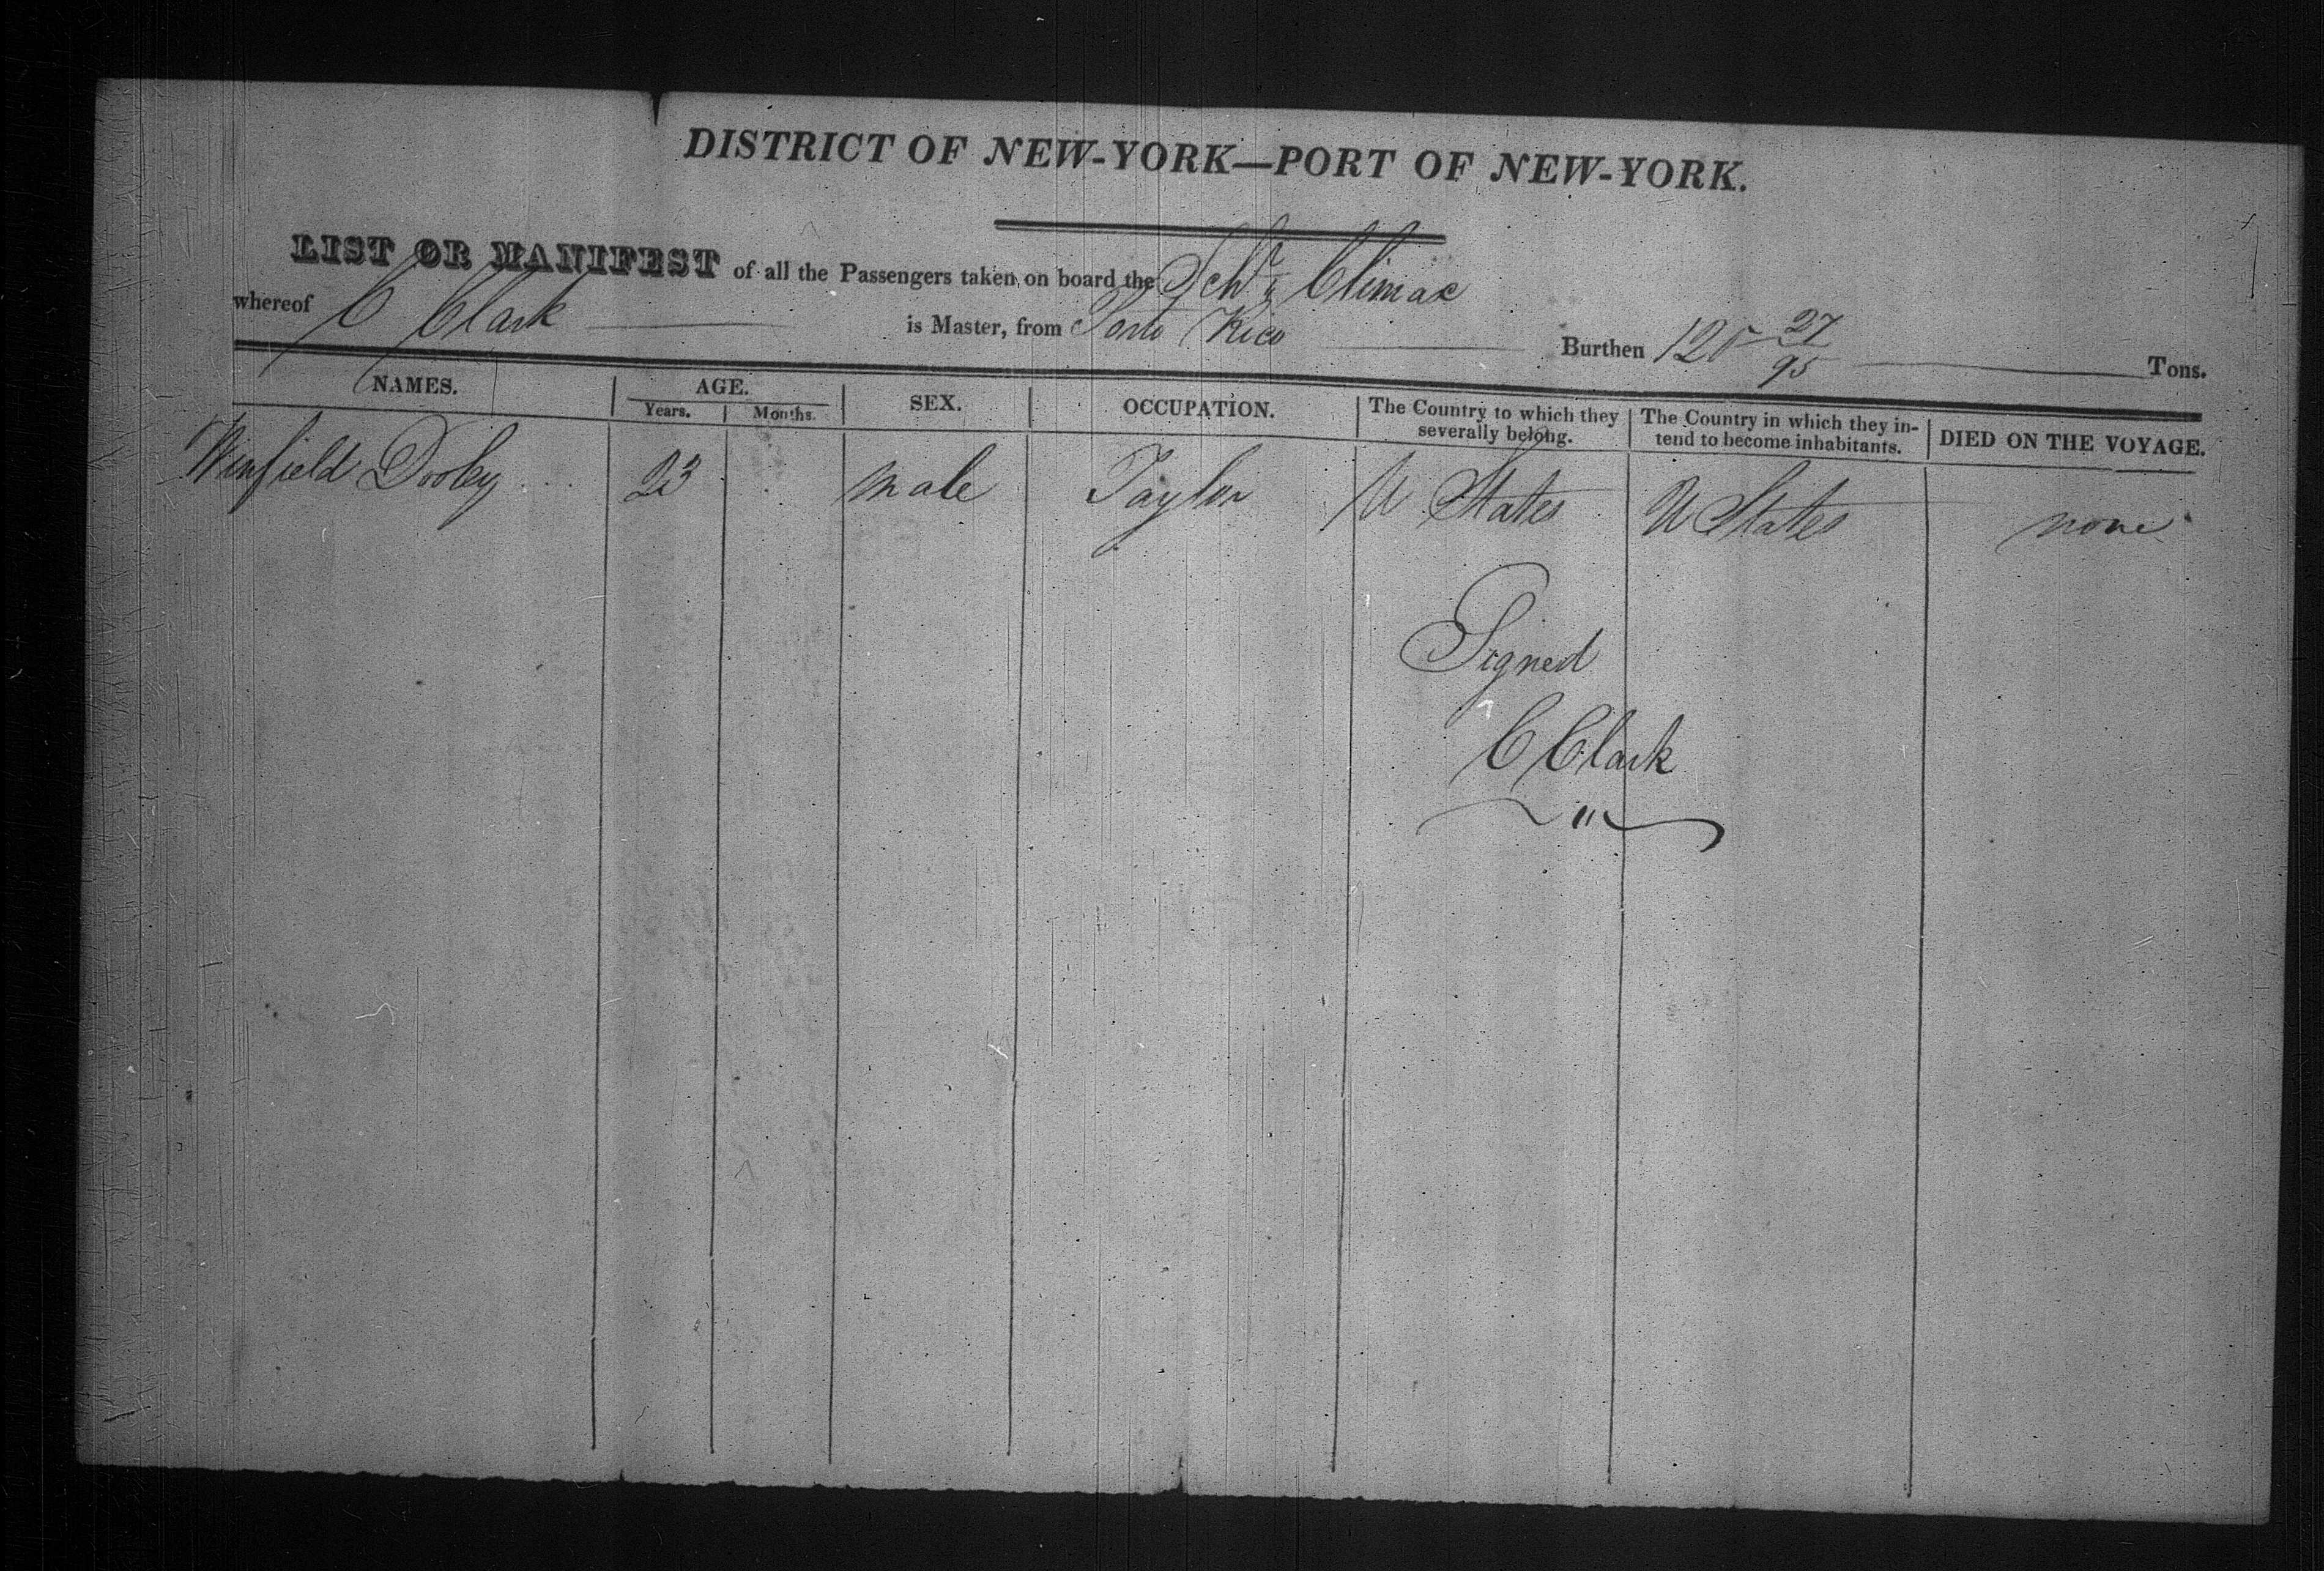 DISTRICT OF NEW-YORK—PORT OF NEW-YORK.
LIST OR MANIFEST of all the Passengers taken on board the Schr Climax
whereof C Clark is Master, from Porto Rico Burthen 125 27/95 Tons.
NAMES. AGE. SEX. OCCUPATION. The Country to which they severally belong. The Country in which they intend to become inhabitants. DIED ON THE VOYAGE.
Years. Months.
Winfield Dooley 23 male Taylor U States U States none
Signed
C Clark